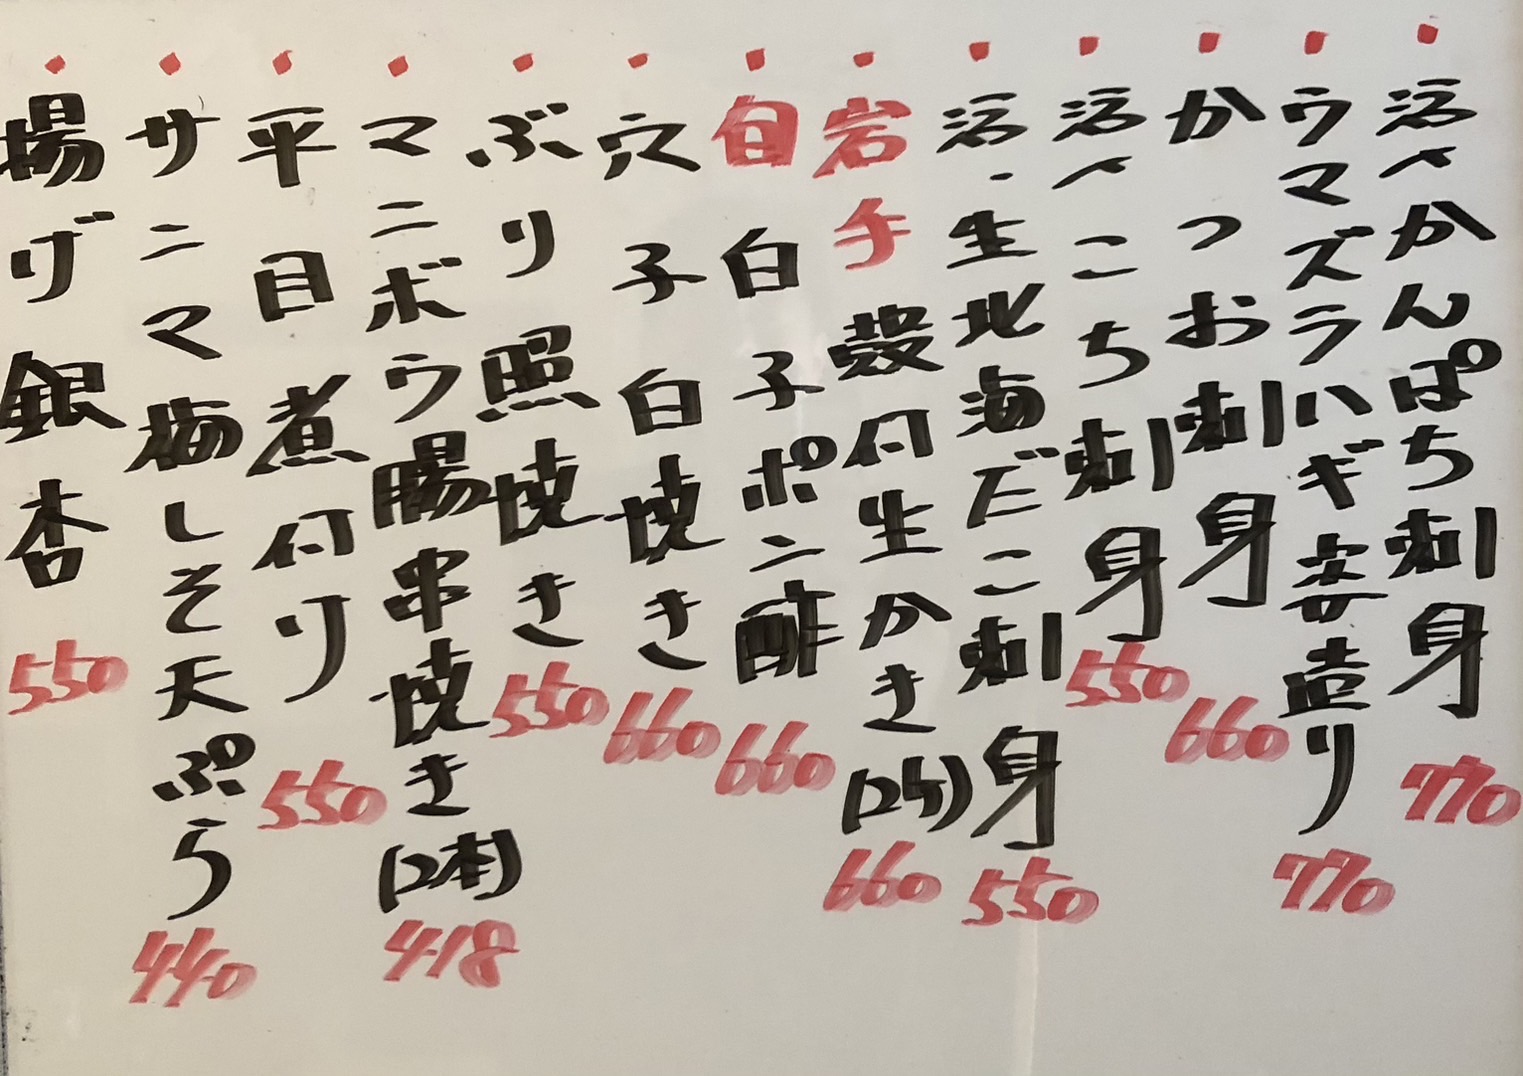 活〆かんぱち刺身 770
ウマズラハギ姿造り 770
かつお刺身 660
活〆こち刺身 550
活・生北海だこ刺身 550
岩手殻付生かき(2ケ) 660
旬白子ポン酢 660
穴子白焼き 660
ぶり照焼き 550
マンボウ腸串焼き(2本) 418
平目煮付け 550
サンマ梅しそ天ぷら 440
揚げ銀杏 550